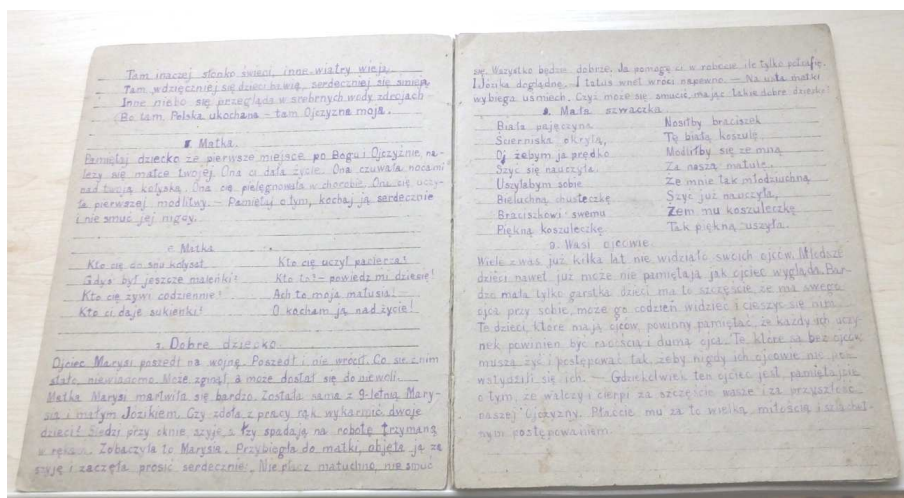 Tam inaczej słonko świeci, inne wiatry wieją
Tam wdzięczniej się dzieci bawią, serdeczniej się śmieją
Inne niebo się przegląda w srebrnych wody zdrojach
Bo tam Polska ukochana - tam Ojczyzna moja.
Matka.
Pamiętaj dziecko że pierwsze miejsce po Bogu i Ojczyźnie na-
leży się matce twojej. Ona ci dała życie. Ona czuwała nocami
nad twoją kołyską. Ona cię pielęgnowała w chorobie. Ona cię uczy-
ła pierwszej modlitwy. - Pamiętaj o tym, kochaj ją serdecznie
i nie smuć jej nigdy.
Matka
Kto cię do snu kołysał
Gdyś był jeszcze maleńki?
Kto cię żywi codziennie?
Kto ci daje sukienki?
Kto cię uczył pacierza?
Kto to? - powiedz mi dziecię!
Ach to moja matusia! -
O kocham ją nad życie!
7. Dobre dziecko.
Ojciec Marysi poszedł na wojnę. Poszedł i nie wrócił. Co się z nim
stało, niewiadomo. Może zginął a może dostał się do niewoli.
Matka Marysi martwiła się bardzo. Została sama z 9-letnią Mary-
sią i małym Józikiem. Czy zdoła z pracy rąk wykarmić dwoje
dzieci? Siedzi przy oknie, szyje, a łzy spadają na robotę trzymaną
w rękach. Zobaczyła to Marysia. Przybiegła do matki, objęła ją za
szyję i zaczęła prosić serdecznie: Nie płacz matuchno, nie smuć
się. Wszystko będzie dobrze. Ja pomogę ci w robocie ile tylko potrafię.
I Józika doglądnę. I tatuś wnet wróci napewno. - Na usta matki
wybiega uśmiech. Czyż może się smucić, mając takie dobre dziecko?
8. Mała szwaczka.
Biała pajęczyna
Ścierniska okryła,
Oj żebym ja prędko
Szyć się nauczyła.
Uszyłabym sobie
Bieluchną chusteczkę
Braciszkowi swemu
Piękną koszuleczkę
Nosiłby braciszek
Tę białą koszulę
Modliłby się ze mną
Za naszą matulę.
Że mnie tak młodziuchną
Szyć już nauczyła,
Żem mu koszuleczkę
Tak piękną uszyła.
9. Wasi ojcowie.
Wiele z was już kilka lat nie widziało swoich ojców. Młodsze
dzieci nawet już może nie pamiętają jak ojciec wygląda. Bar-
dzo mała tylko garstka dzieci ma to szczęście, że ma swego
ojca przy sobie, może go codzień widzieć i cieszyć się nim.
Te dzieci, które mają ojców, powinny pamiętać, że każdy ich uczy-
nek powinien być radością i dumą ojca. Te które są bez ojców
muszą żyć i postępować tak, żeby nigdy ich ojcowie nie po-
wstydzili się ich. - Gdziekolwiek ten ojciec jest, pamiętajcie
o tym, że walczy i cierpi za szczęście wasze i za przyszłość
naszej Ojczyzny. Płaćcie mu za to wielką miłością i szlachet-
nym postępowaniem.